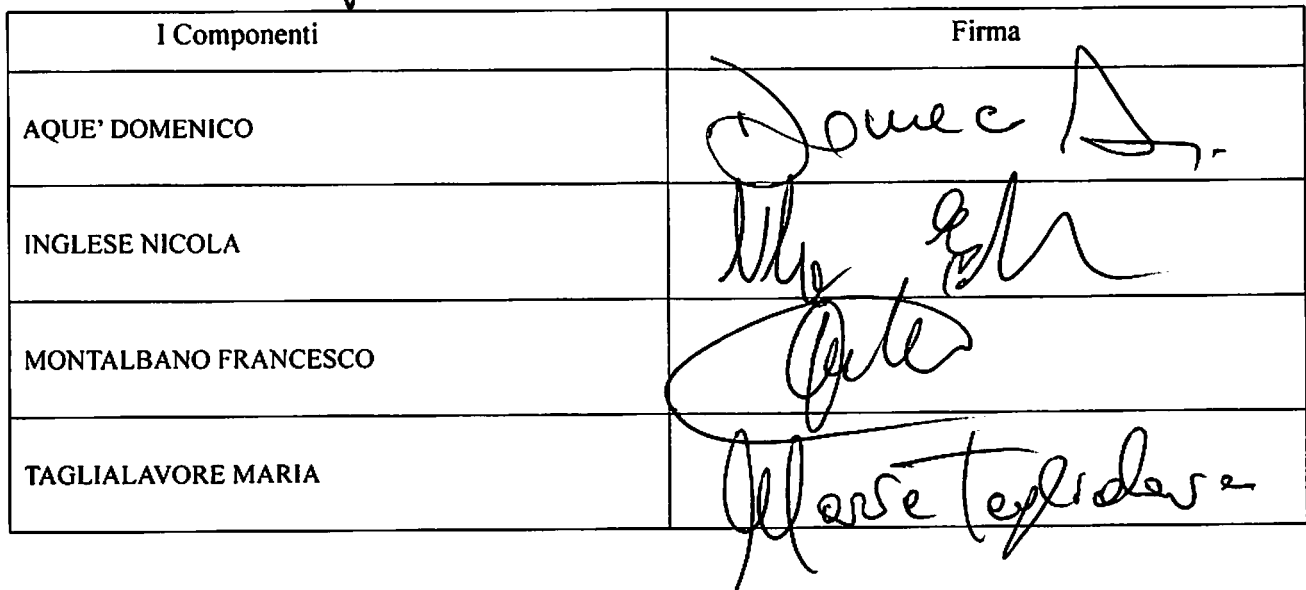 I Componenti Firma
AQUE' DOMENICO
INGLESE NICOLA
MONTALBANO FRANCESCO
TAGLIALAVORE MARIA Maria Taglialavore